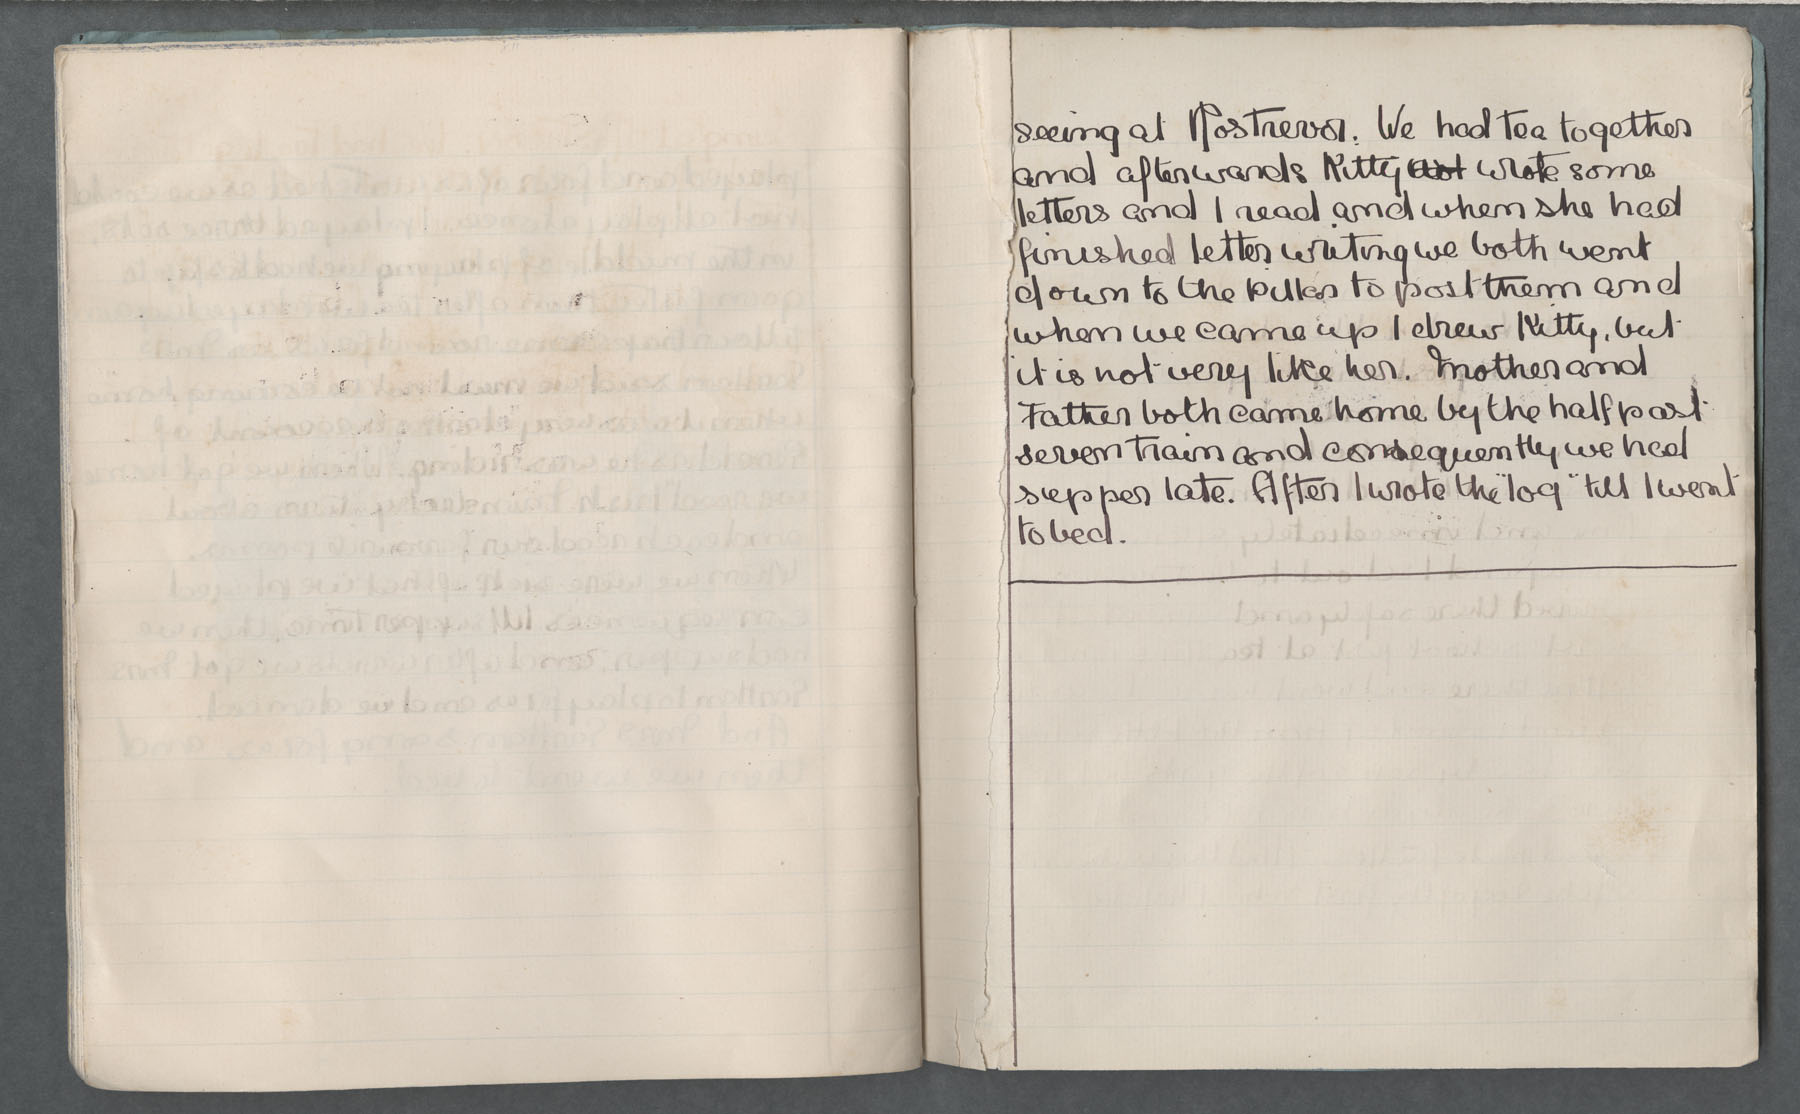 seeing at Rostrevor. We had tea together
and afterwards Kitty wrote some
letters and I read and when she had
finished letter writing we both went
down to the pillar to post them and
when we came up I drew Kitty, but
it is not very like her. Mother and
Father both came home by the half past
seven train and consequently we had
supper late. After I wrote the "log" till I went
to bed.